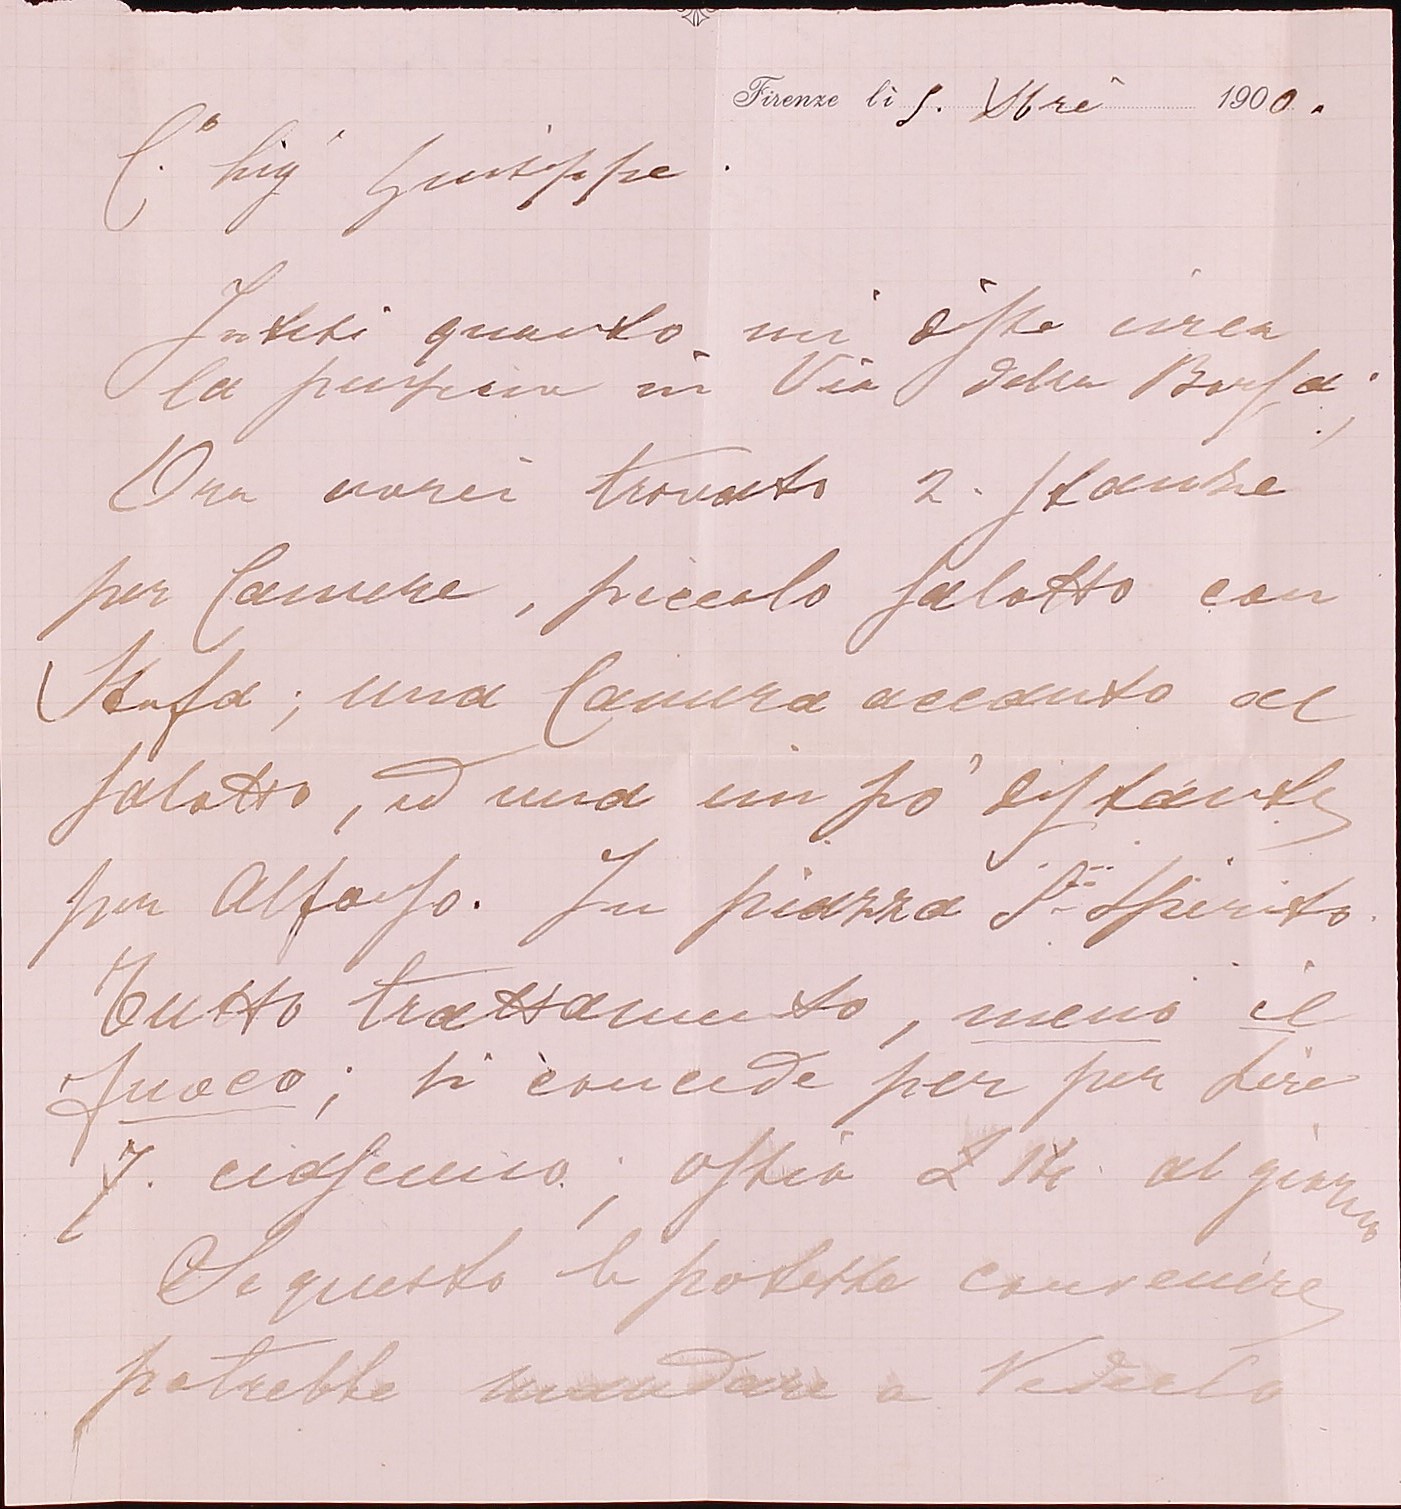 Firenze lì 5. Xbre 1900.
C.o Sig.r Giuseppe.
Intesi quanto mi disse circa
la pensione in Via della Borsa;
Ora avrei trovato 2. stanze
per Camere, piccolo salotto con
Stufa; una Camera accanto al
salotto, ed una un po' distante
per Alfonso. In piazza Sto Spirito.
Tutto trattamento, meno il
fuoco; si concede per per Lire
7. ciascuno; ossia L 14 al giorno
Se questo le potesse convenire
potrebbe mandare a Vederlo